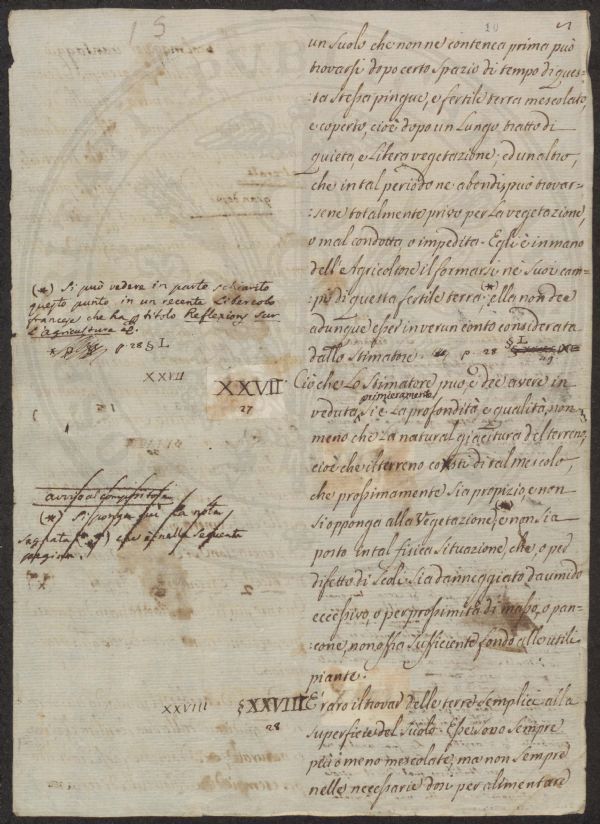 15
10
un suolo che non ne contenea prima può
trovarsi dopo certo spazio di tempo di ques=
=ta stessa pingue, e fertile terra mescolato,
e coperto, cioè dopo un lungo tratto di
quieta, e libera vegetazione; ed un altro,
che in tal periodo ne abondi, può trovar=
=sene totalmente privo per la vegetazione,
o mal condotta, o impedita. Egli è in mano
dell'Agricoltore il formarsi ne' suoi cam=
pi di questa fertile terra (*) ella non dee
adunque esser in verun conto considerata
dallo Stimatore. p. 28 § L
(*) Si può vedere in parte schiarito
questo punto in un recente Libercolo
francese che ha p titolo Reflexions sur
l'agriculture &c
p. 28 § L
XXVII
XXVII
27
Ciò che lo Stimatore può, e dee avere in
veduta, primieramente si è la profondità, e qualità, non
meno che la natural giacitura del terreno,
cioè che il terreno costi di tal mescolo,
che prossimamente sia propizio, e non
si opponga alla vegetazione, (*) e non sia
posto in tal fisica situazione, che, o per
difetto di scoli sia danneggiato da umido
eccessivo, o per prossimità di masso, o pan=
=cone, non ossia sufficiente fondo alle utili
piante.
avviso al compositore
(*) Si ponga qui la nota
segnata (**) che è nella seguente
pagina.
XXVIII
§ XXVIII
28
È raro il trovar delle terre semplici alla
superficie del suolo. Esse sono sempre
più o meno mescolate, ma non sempre
nelle necessarie dosi per alimentare